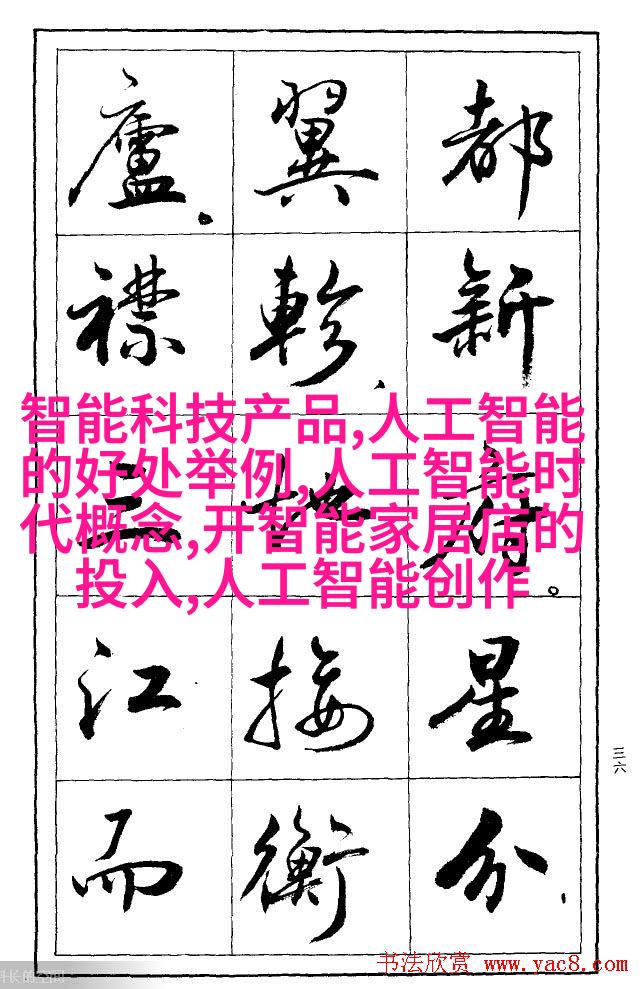 都新府。星分、
翼軫、地接衡
廬。襟三江而
智能科技产品,人工智能
的好处举例,人工智能时
代概念,开智能家居店的
投入,人工智能创作
三六
书法欣赏 www.yac8.com
长的空间